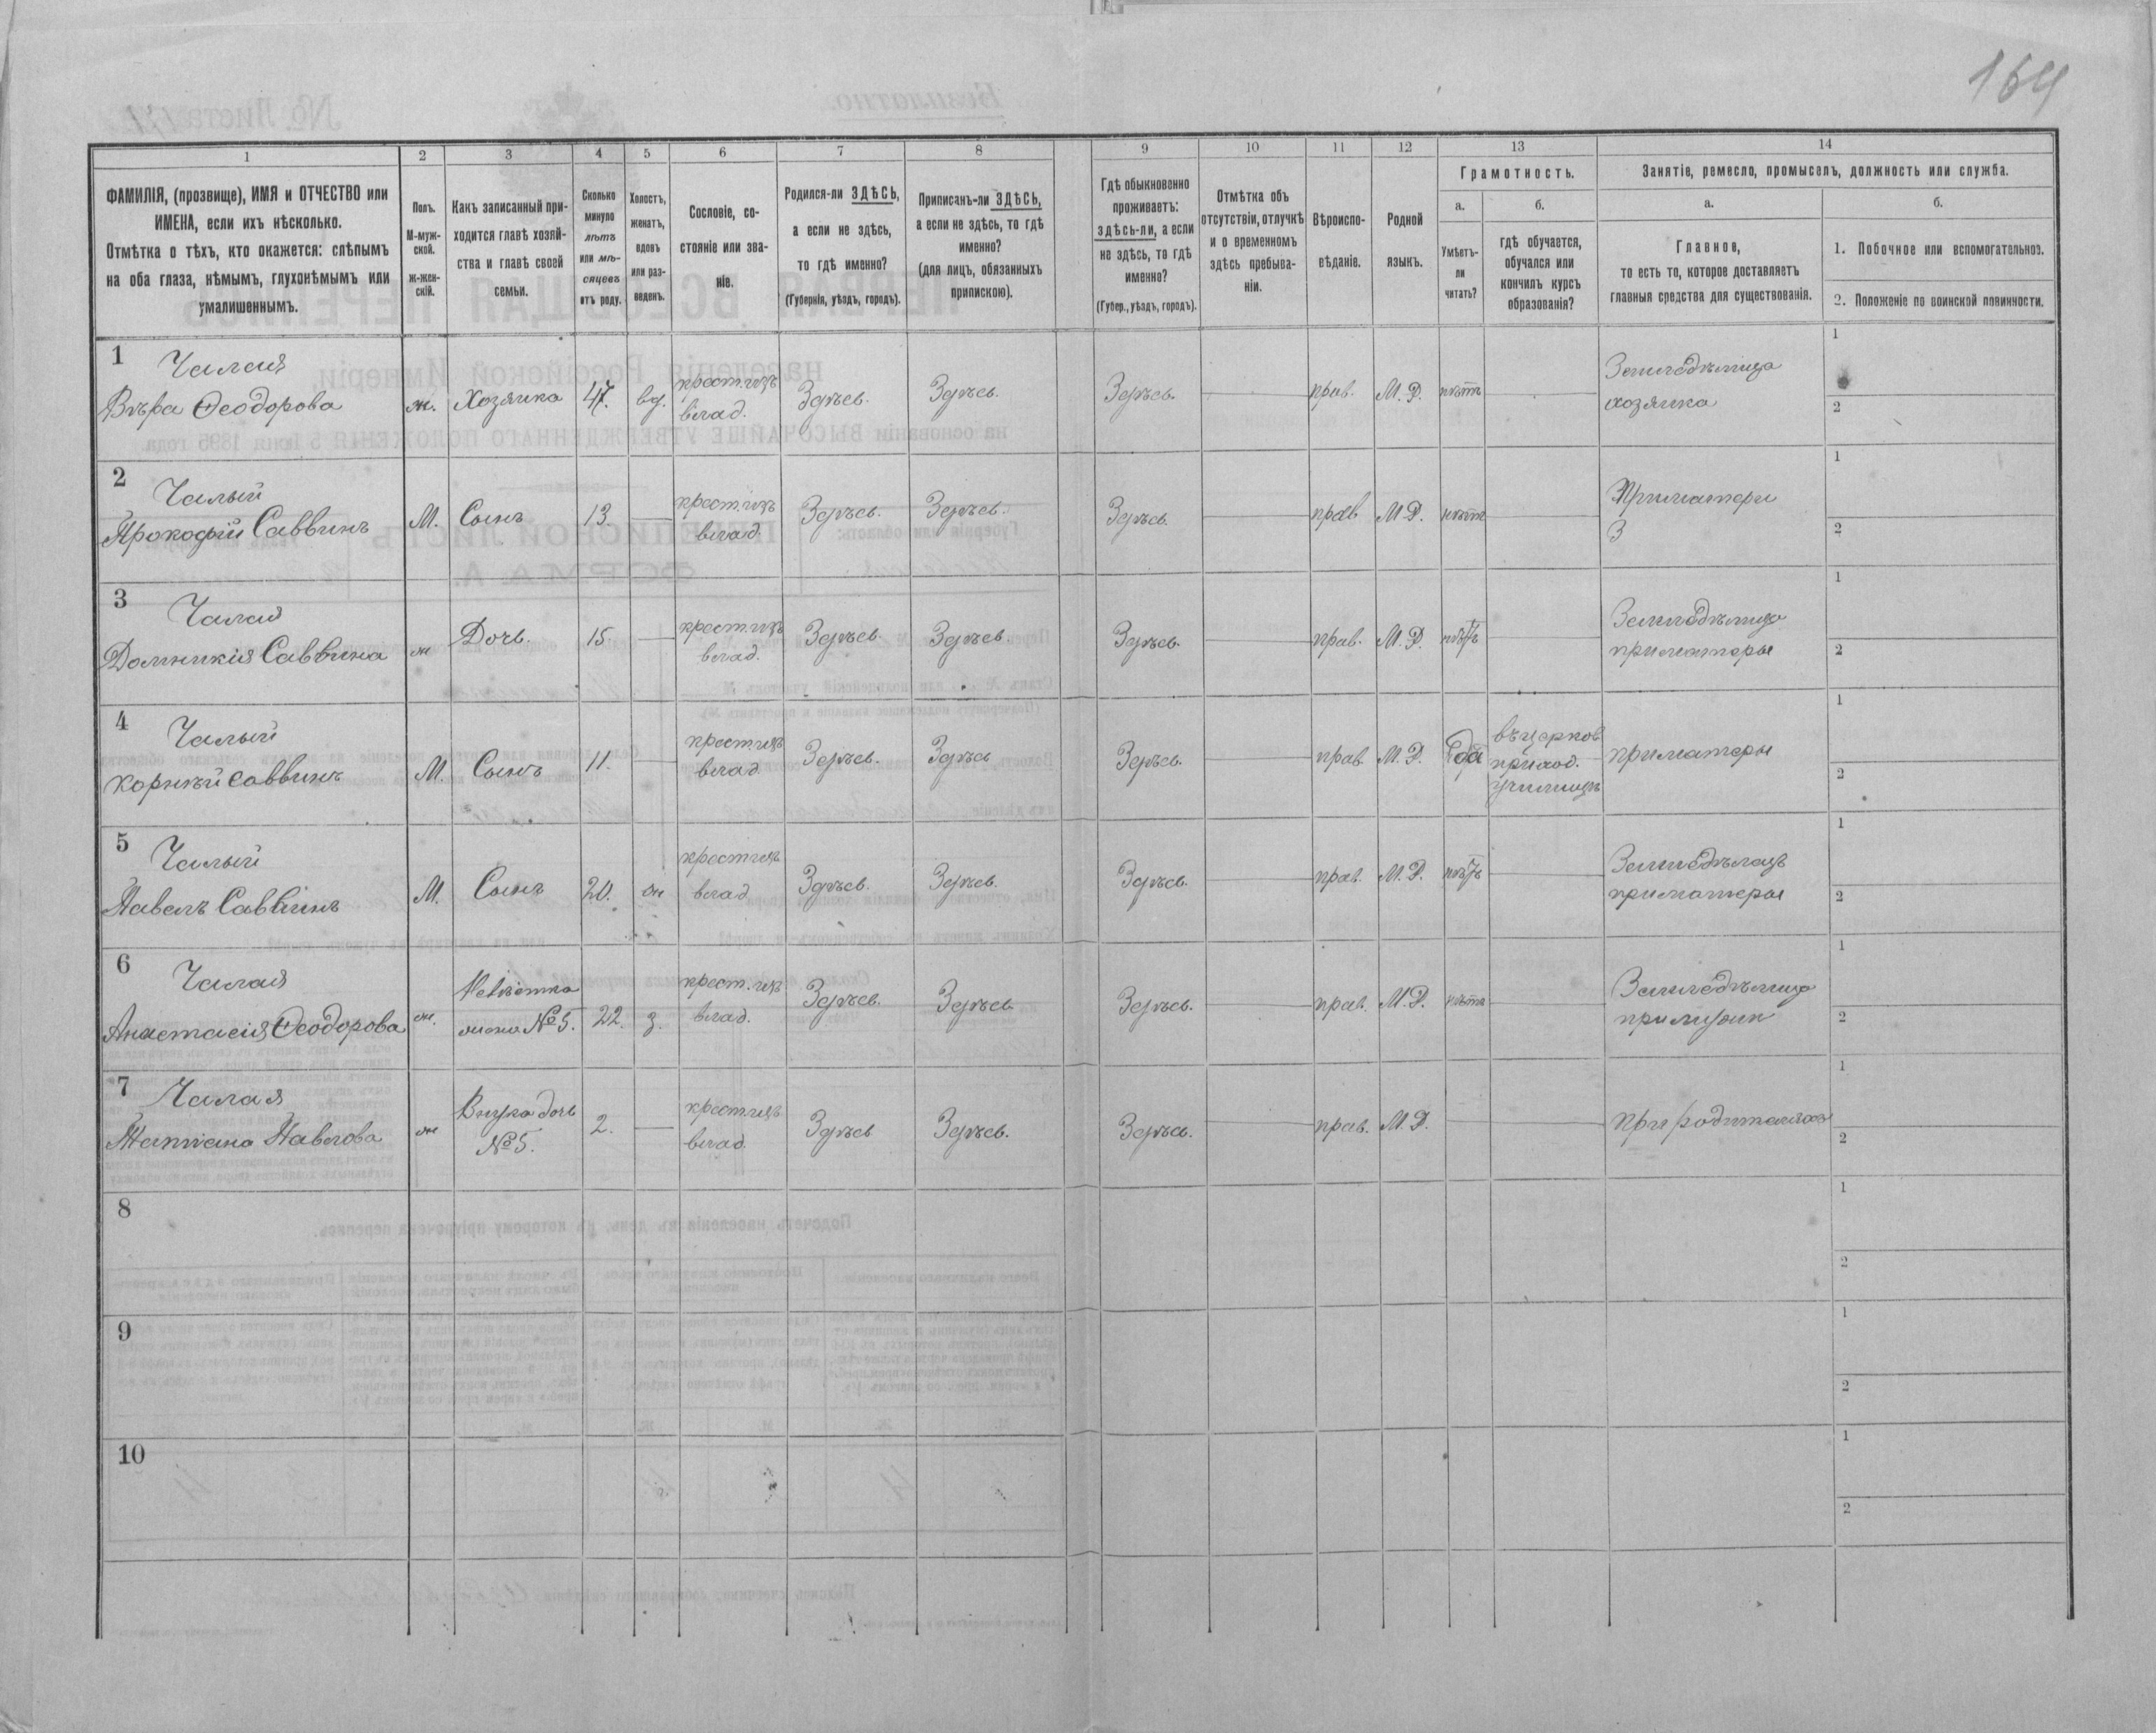 164
1 2 3 4 5 6 7 8 9 10 11 12 13 14
ФАМИЛІЯ, (прозвище), ИМЯ и ОТЧЕСТВО или
ИМЕНА, если ихъ нѣсколько.
Отмѣтка о тѣхъ, кто окажется: слѣпымъ
на оба глаза, нѣмымъ, глухонѣмымъ или
умалишеннымъ.
Полъ.
М-муж-
ской.
Ж-жен-
скій.
Какъ записанный при-
ходится главѣ хозяй-
ства и главѣ своей
семьи.
Сколько
минуло
лѣтъ
или мѣ-
сяцевъ
отъ роду.
Холостъ,
женатъ,
вдовъ
или раз-
веденъ.
Сословіе, со-
стояніе или зва-
ніе.
Родился-ли ЗДѢСЬ,
а если не здѣсь,
то гдѣ именно?
(Губернія, уѣздъ, городъ).
Приписанъ-ли ЗДѢСЬ,
а если не здѣсь, то гдѣ
именно?
(для лицъ, обязанныхъ
припискою).
Гдѣ обыкновенно
проживаетъ:
здѣсь-ли, а если
не здѣсь, то гдѣ
именно?
(Губер., уѣздъ, городъ).
Отмѣтка объ
отсутствіи, отлучкѣ
и о временномъ
здѣсь пребыва-
ніи.
Вѣроиспо-
вѣданіе.
Родной
языкъ.
Грамотность.
а.
Умѣетъ-
ли
читать?
б.
гдѣ обучается,
обучался или
кончилъ курсъ
образованія?
Занятіе, ремесло, промыселъ, должность или служба.
а.
Главное,
то есть то, которое доставляетъ
главныя средства для существованія.
б.
1. Побочное или вспомогательное.
2. Положеніе по воинской повинности.
1 Чалая
Вѣра Ѳеодорова ж. Хозяйка 47. вд. крест. изъ влад. Здѣсь. Здѣсь. Здѣсь. прав. М. Р. нѣтъ
хозяйка
1
2
2 Чалый
Прокофій Саввинъ М. Сынъ 13. крест. изъ влад. Здѣсь. Здѣсь. Здѣсь. прав М. Р. нѣтъ При матери
З
1
2
3 Чалая
Домникія Саввина ж Дочь. 15. крест. изъ влад. Здѣсь. Здѣсь. Здѣсь. прав. М. Р. нѣтъ
при матери
1
2
4 Чалый
Корнѣй Саввинъ М. Сынъ 11. крест. изъ влад. Здѣсь. Здѣсь Здѣсь. прав. М. Р. да въ церков.
приход.
училищѣ
при матери
1
2
5 Чалый
Павелъ Саввинъ М. Сынъ 20. ж крест изъ влад Здѣсь. Здѣсь. Здѣсь. прав. М. Р. нѣтъ
при матери
1
2
6 Чалая
Анастасія Ѳеодорова ж. Невѣстка
жена №5. 22. з. крест. изъ влад. Здѣсь. Здѣсь Здѣсь. прав. М. Р. нѣтъ
при мужи
1
2
7 Чалая
Татіана Павлова ж Внука дочь
№5. 2. крест. изъ влад. Здѣсь Здѣсь. Здѣсь. прав. М. Р. При родителяхъ
1
2
8
1
2
9
1
2
10
1
2